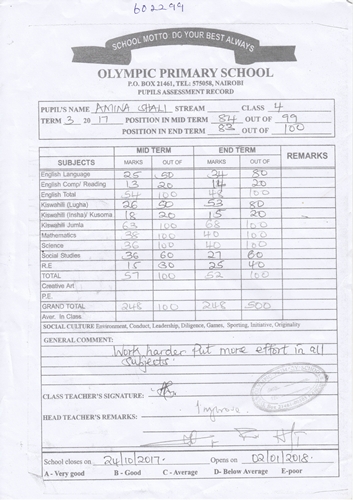 602299
SCHOOL MOTTO DO YOUR BEST ALWAYS
OLYMPIC PRIMARY SCHOOL
P.O. BOX 21461, TEL: 575058, NAIROBI
PUPILS ASSESSMENT RECORD
PUPIL'S NAME AMINA GHALI STREAM CLASS 4
TERM 3 2017 POSITION IN MID TERM 84 OUT OF 99
POSITION IN END TERM 83 OUT OF 100
MID TERM END TERM REMARKS
SUBJECTS MARKS OUT OF MARKS OUT OF
English Language 25 50 24 80
English Comp/ Reading 13 20 14 20
English Total 54 100 48 100
Kiswahili (Lugha) 26 50 53 80
Kiswahili (Insha)/ Kusoma 18 20 15 20
Kiswahili Jumla 63 100 68 100
Mathematics 38 100 40 100
Science 36 100 40 100
Social Studies 36 60 27 60
R.E 15 30 25 40
TOTAL 57 100 52 100
Creative Art
P.E.
GRAND TOTAL 248 100 248 500
Aver. In Class
SOCIAL CULTURE Environment, Conduct, Leadership, Diligence, Games, Sporting, Initiative, Originality
GENERAL COMMENT:
Work harder Put more effort in all
subjects.
CLASS TEACHER'S SIGNATURE:
HEAD TEACHER'S REMARKS: Improve
School closes on 24/10/2017. Opens on 02/01/2018.
A - Very good B - Good C - Average D- Below Average E-poor